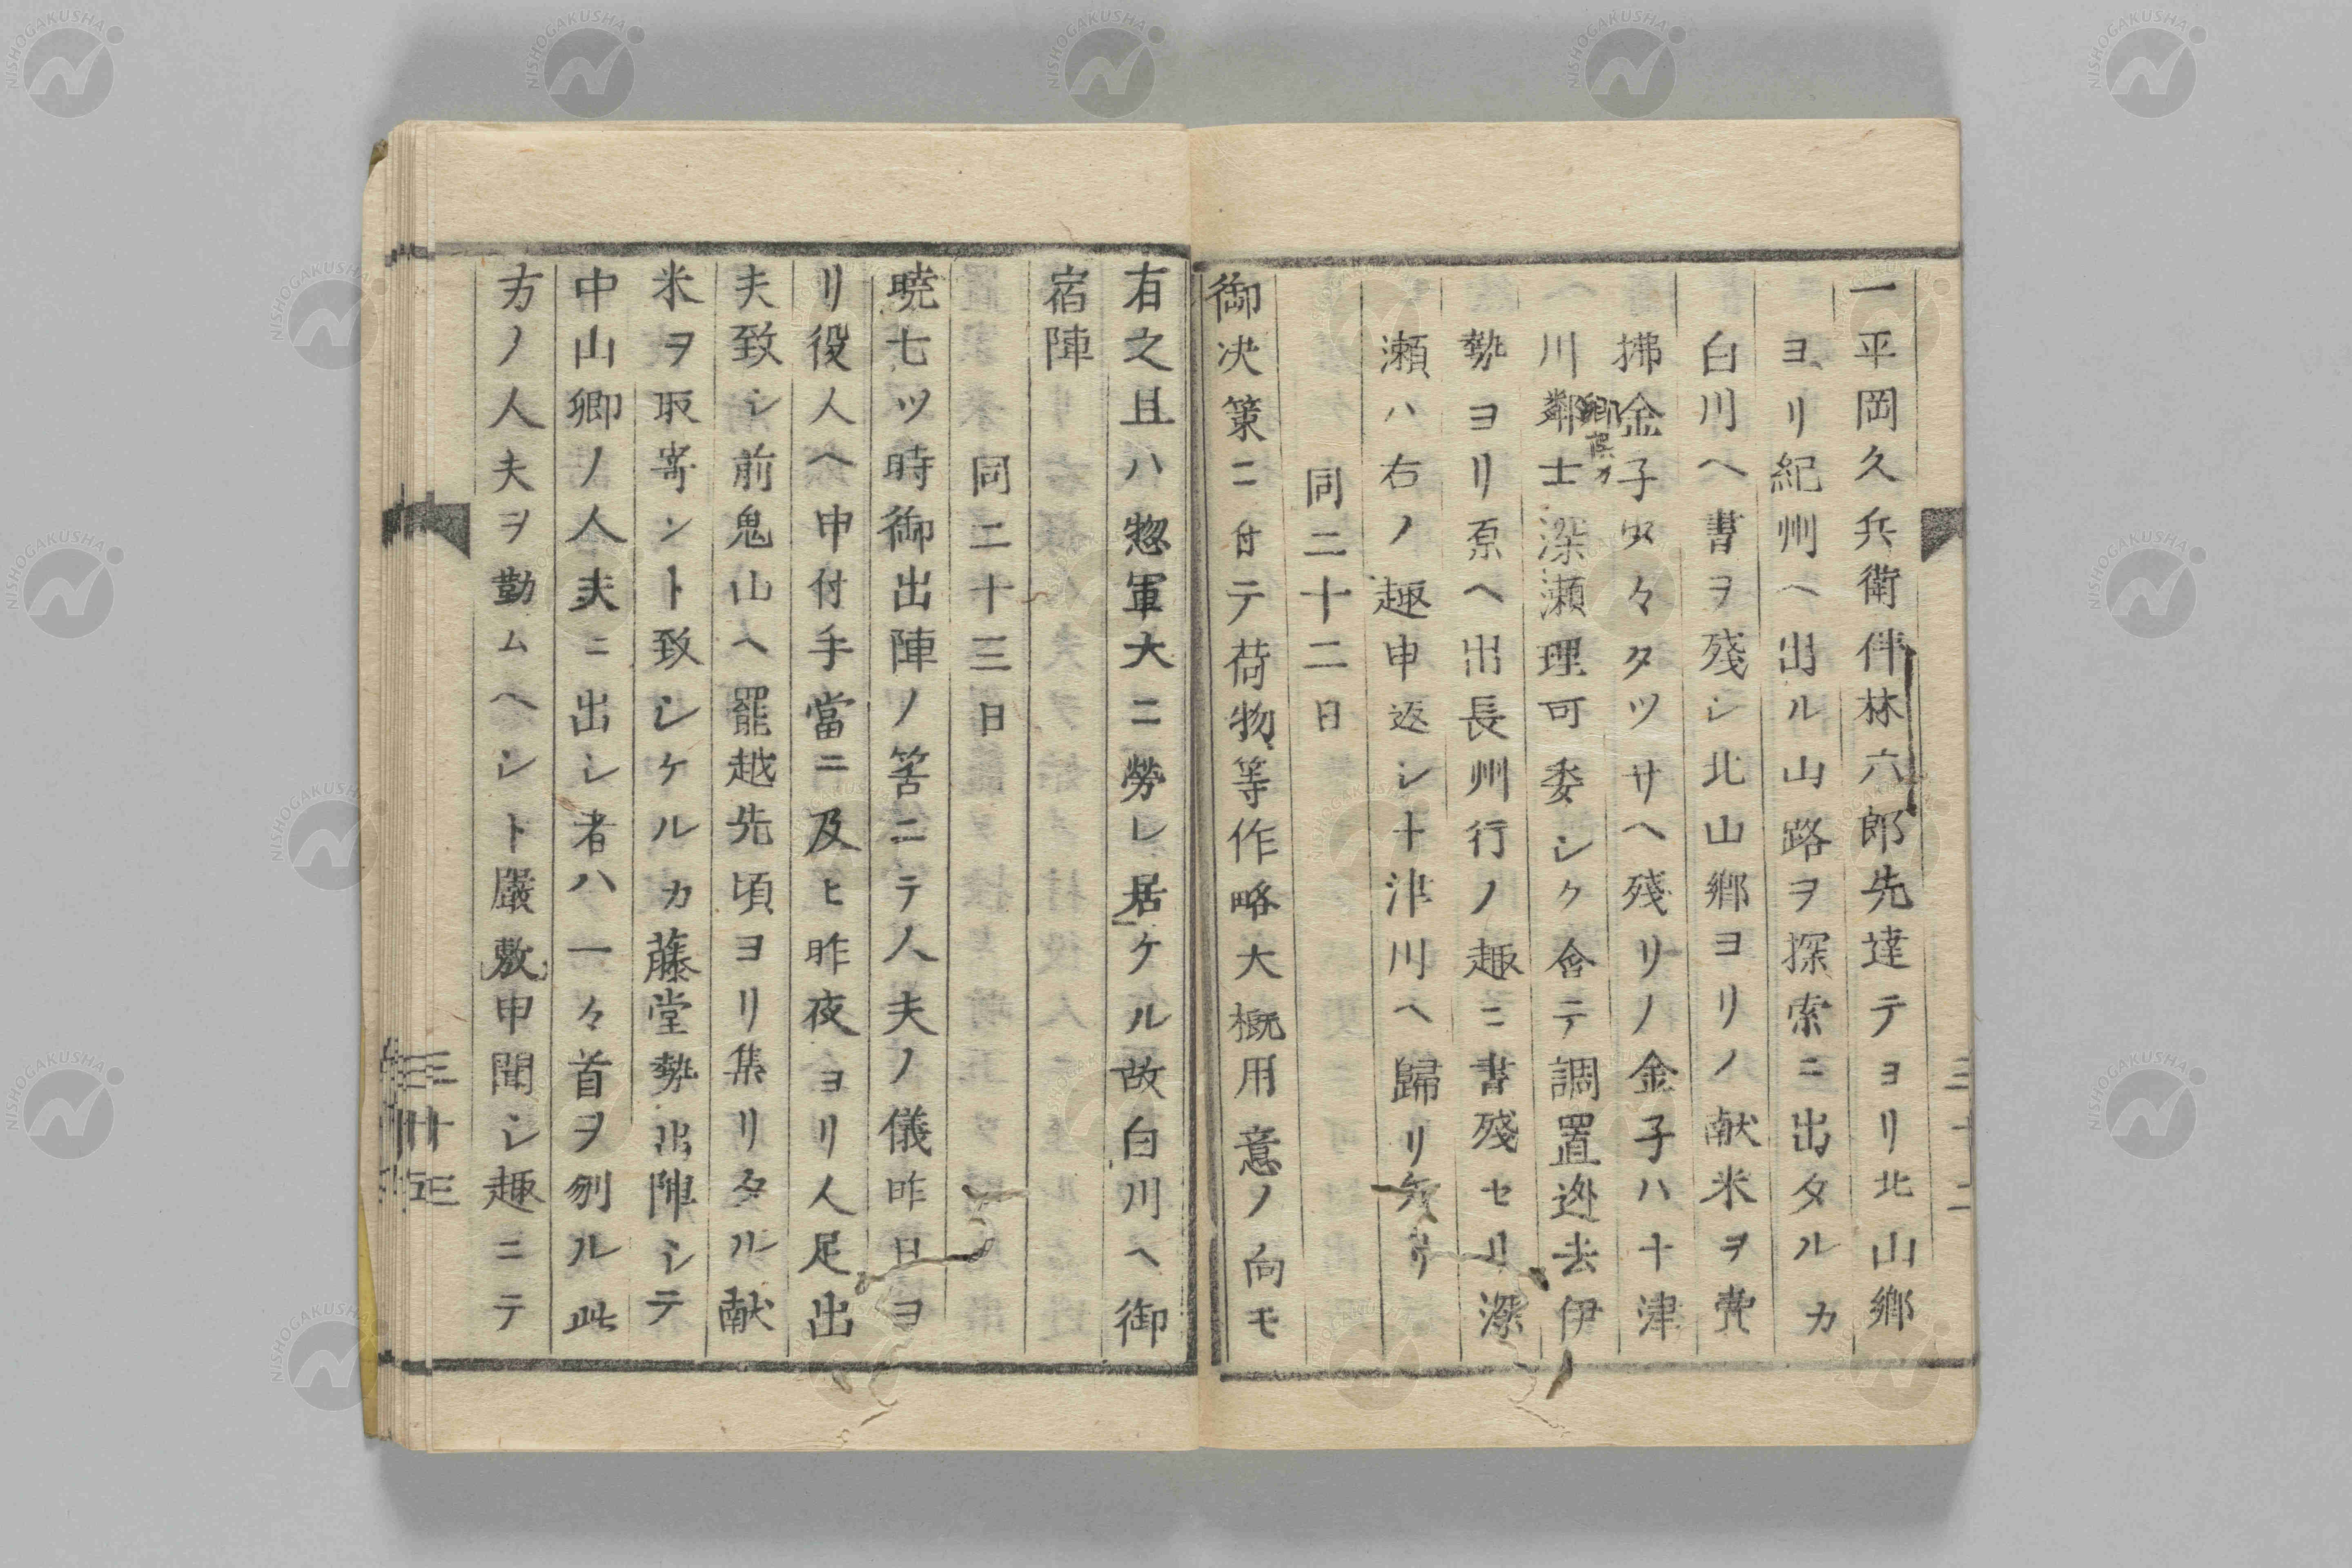 一平岡久兵衛伴林六郎先達テヨリ北山郷
ヨリ紀州ヘ出ル山路ヲ探索ニ出タルカ
白川ヘ書ヲ残シ北山郷ヨリノ献米ヲ費
拂金子少々タツサヘ残リノ金子ハ十津
川鄰士深瀬理可委シク含テ調置迯去伊
郷誤カ
勢ヨリ原ヘ出長州行ノ趣ニ書残セリ深
瀬ハ右ノ趣申返シ十津川ヘ歸リ矣リ
同二十二日
御决策ニ付テ荷物等作略大概用意ノ向モ
有之且ハ惣軍大ニ勞レ居ケル故白川ヘ御
宿陣
同二十三日
暁七ツ時御出陣ノ筈ニテ人夫ノ儀昨日ヨ
リ役人ヘ申付手當ニ及ヒ昨夜ヨリ人足出
夫致シ前鬼山ヘ罷越先頃ヨリ集リタル献
米ヲ取寄ント致シケルカ藤堂勢出陣シテ
中山卿ノ人夫ニ出シ者ハ一々首ヲ刎ル此
方ノ人夫ヲ勤ムヘシト嚴敷申聞シ趣ニテ
NISHOGAKUSHA